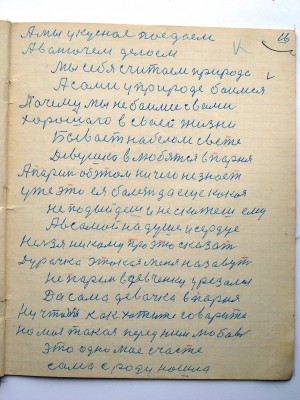 66
А мы укуснае поедаем
А ваточем делоем
мы себя считаем природа
А сами у природе баимся
Почему мы небаиме с вами
хорошаго в сваей жизни
Бывает на белом свете
Девушка влюбятся в парня
А парин обтом ничего незнает
уже это ея балезда еще кокоя
не подыйдеш и не скажеш ему
А в самой на душе и серце
Нелзя никому про это сказат
Дурачка этокая меня назавут
не парин в девчёнку урезался
Да сама девачка в парня
Ну чтож как хотите говарите
но моя такая перед ним любов
это одно мае счасте
сама с роду нашла